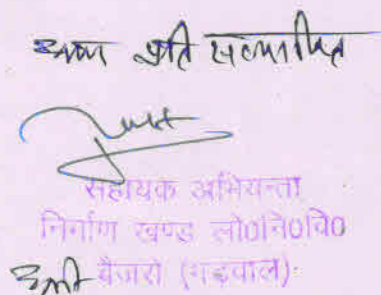 प्रति सत्यापित
सहायक अभियन्ता
निर्माण खण्ड लो०नि०वि०
बैजरो (गढ़वाल)